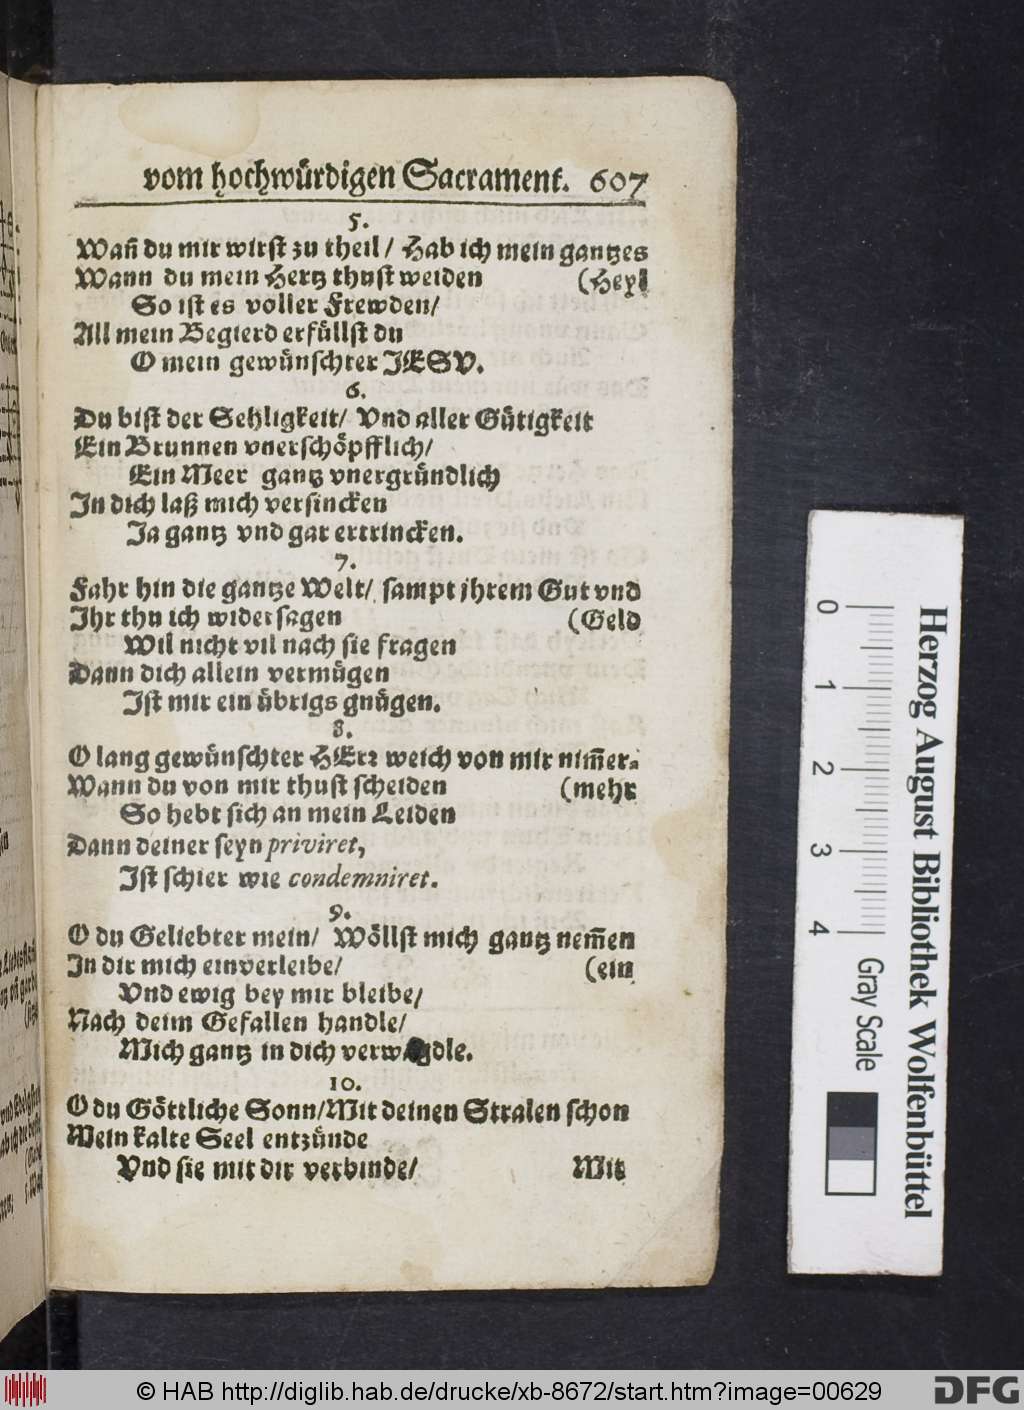 vom hochwürdigen Sacrament. 607
5.
Wañ du mir wirst zu theil / Hab ich mein gantzes
Wann du mein Hertz thust weiden (Heyl
So ist es voller Frewden/
All mein Begierd erfüllst du
O mein gewünschter JESV.
6.
Du bist der Sehligkeit/ Vnd aller Gütigkeit
Ein Brunnen vnerschöpfflich/
Ein Meer gantz vnergründlich
In dich laß mich versincken
Ja gantz vnd gar ertrincken.
7.
Fahr hin die gantze Welt/ sampt ihrem Gut vnd
Ihr thu ich widersagen (Geld
Wil nicht vil nach sie fragen
Dann dich allein vermügen
Ist mir ein übrigs gnügen.
8.
O lang gewünschter HErr weich von mir nim̃er-
Wann du von mir thust scheiden (mehr
So hebt sich an mein Leiden
Dann deiner seyn priviret,
Ist schier wie condemniret.
9.
O du Geliebter mein/ Wöllst mich gantz nem̃en
In dir mich einverleibe/ (ein
Vnd ewig bey mir bleibe/
Nach deim Gefallen handle/
Mich gantz in dich verwandle.
10.
O du Göttliche Sonn/Mit deinen Stralen schon
Mein kalte Seel entzünde
Vnd sie mit dir verbinde/ Mit
Herzog August Bibliothek Wolfenbüttel
0 1 2 3 4 Gray Scale
© HAB http://diglib.hab.de/drucke/xb-8672/start.htm?image=00629 DFG